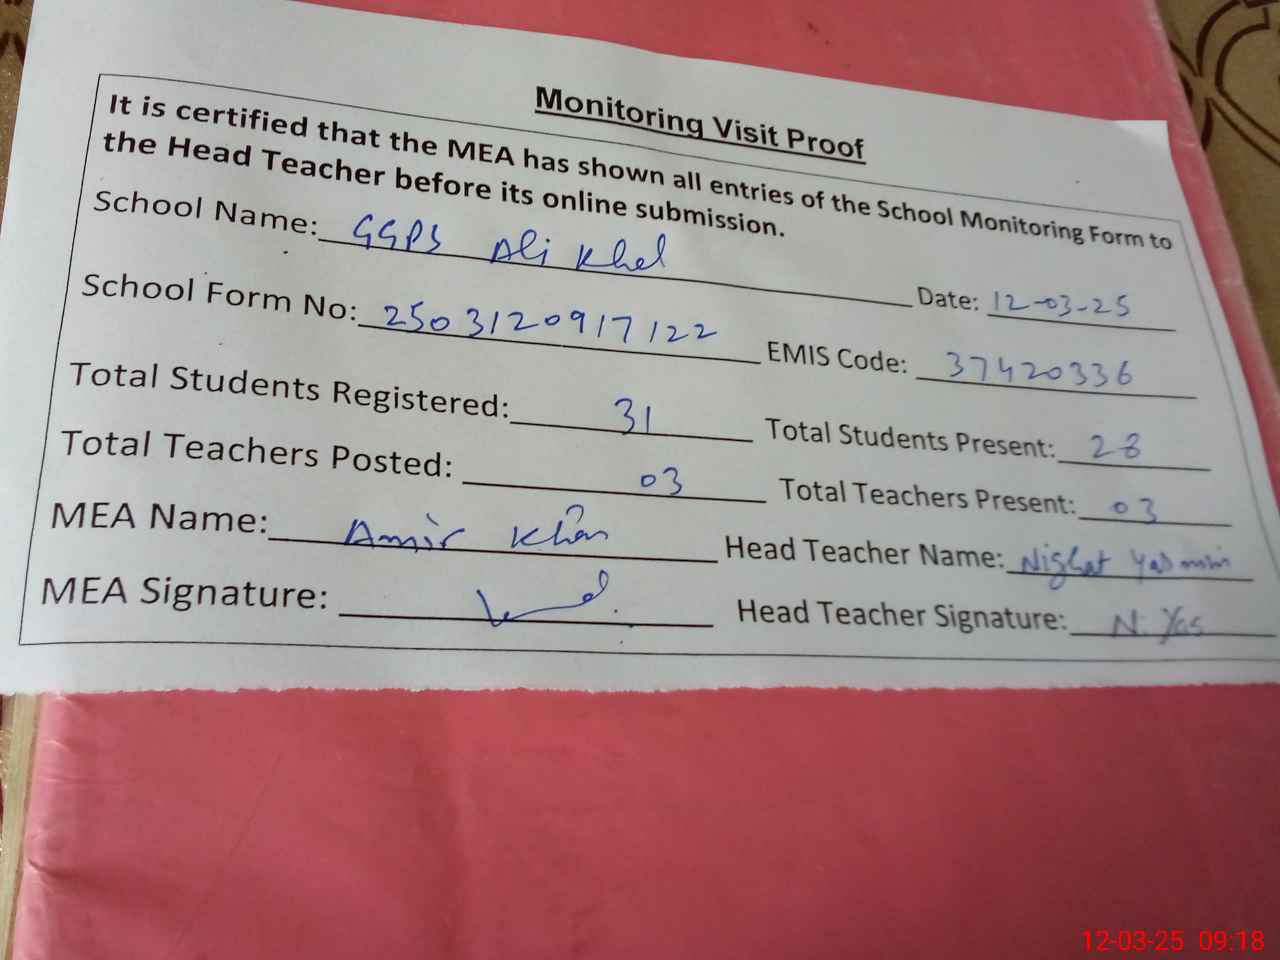 Monitoring Visit Proof
It is certified that the MEA has shown all entries of the School Monitoring Form to
the Head Teacher before its online submission.
School Name: GGPS Ali Khel Date: 12-03-25
School Form No: 2503120917122 EMIS Code: 37420336
Total Students Registered: 31 Total Students Present: 28
Total Teachers Posted: 03 Total Teachers Present: 03
MEA Name: Amir Khan Head Teacher Name: Nighat Yasmin
MEA Signature: Head Teacher Signature: N. Yas
12-03-25 09:18